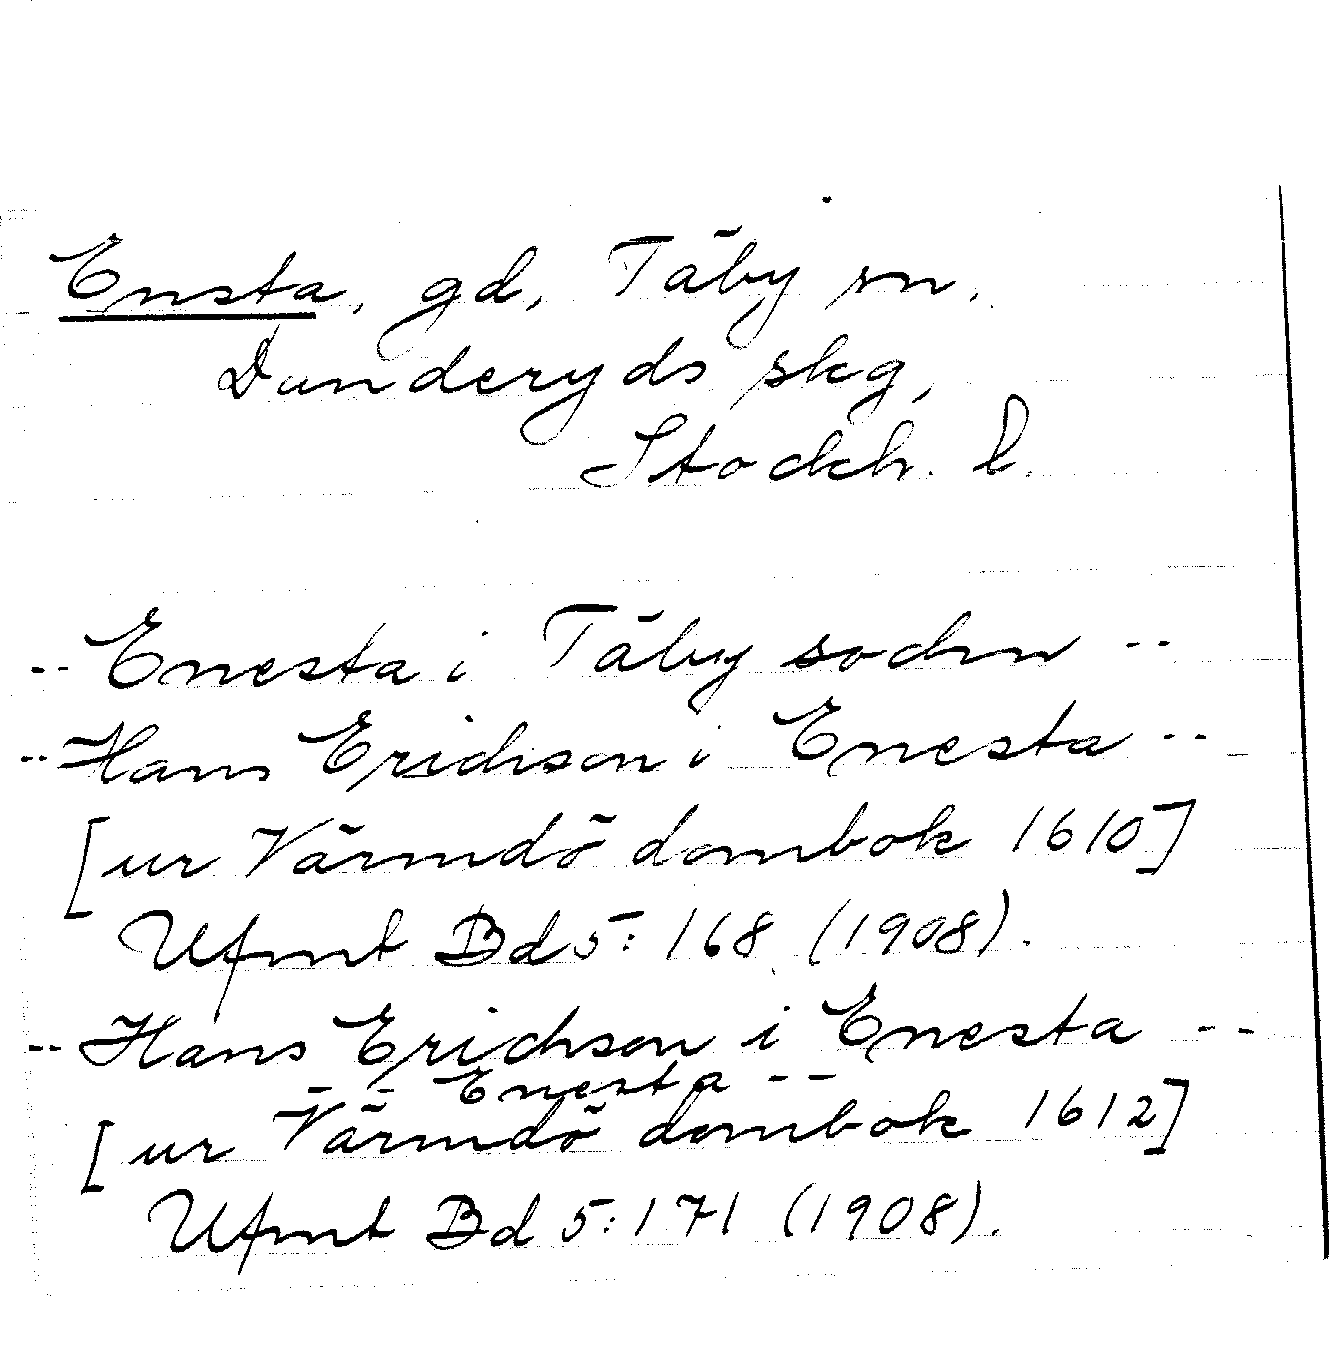 Ensta, gd, Täby sn,
Danderyds skg,
Stockh. l.
-- Enesta i Täby sochn --
-- Hans Erichson i Enesta --
[ur Värmdö dombok 1610]
Ufmt Bd 5: 168 (1908).
-- Hans Erichson i Enesta --
-- Enesta --
[ur Värmdö dombok 1612]
Ufmt Bd 5: 171 (1908).